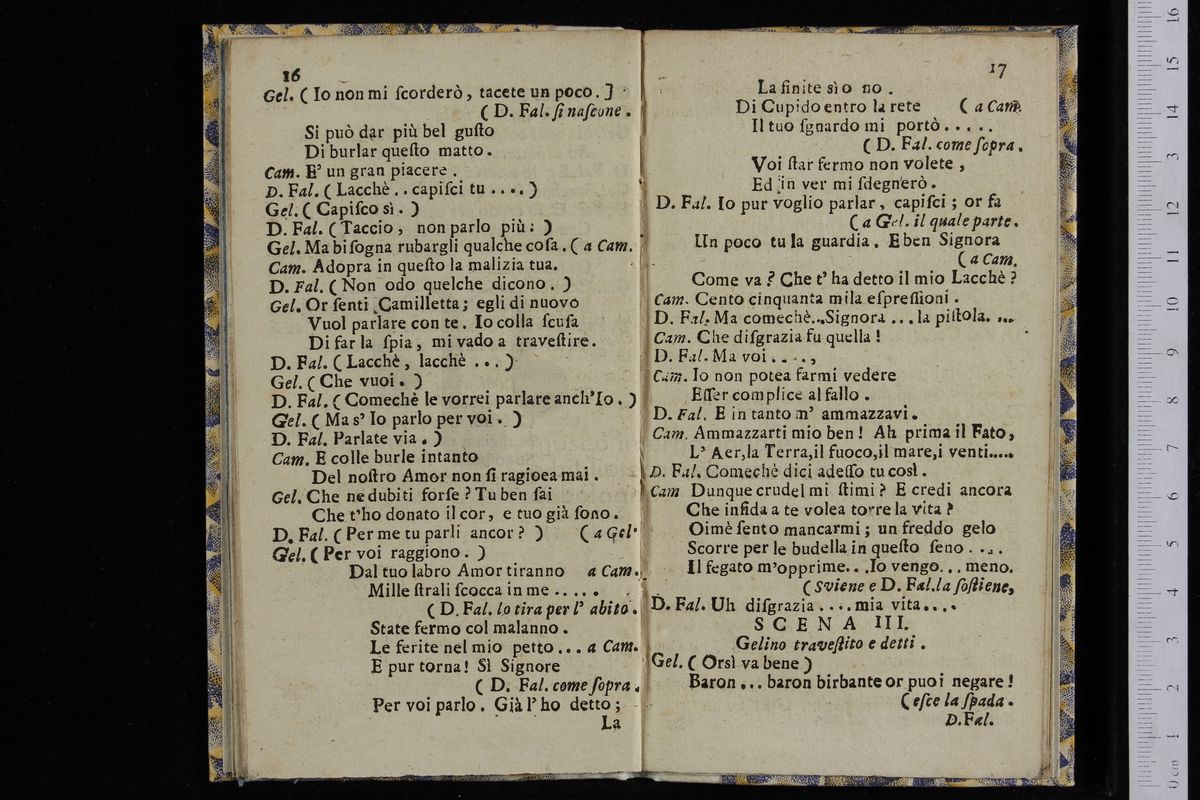 16
Gel. ( Io non mi ſcorderò, tacete un poco. ]
( D. Fal. ſi naſcone.
Si può dar più bel guſto
Di burlar queſto matto.
Cam. E' un gran piacere.
D. Fal. ( Lacchè . . capiſci tu . . . . )
Gel. ( Capiſco sì. )
D. Fal. ( Taccio, non parlo più: )
Gel. Ma biſogna rubargli qualche coſa. ( a Cam.
Cam. Adopra in queſto la malizia tua.
D. Fal. ( Non odo quelche dicono. )
Gel. Or ſenti Camilletta; egli di nuovo
Vuol parlare con te. Io colla ſcuſa
Di far la ſpia, mi vado a traveſtire.
D. Fal. ( Lacchè, lacchè . . . )
Gel. ( Che vuoi. )
D. Fal. ( Comechè le vorrei parlare anch'Io. )
Gel. ( Ma s' Io parlo per voi. )
D. Fal. Parlate via. )
Cam. E colle burle intanto
Del noſtro Amor non ſi ragioea mai.
Gel. Che ne dubiti forſe? Tu ben ſai
Che t'ho donato il cor, e tuo già ſono.
D. Fal. ( Per me tu parli ancor? ) ( a Gel'
Gel. ( Per voi raggiono. )
Dal tuo labro Amor tiranno a Cam.
Mille ſtrali ſcocca in me . . . . .
( D. Fal. lo tira per l' abito.
State fermo col malanno.
Le ferite nel mio petto . . . a Cam.
E pur torna! Sì Signore
( D. Fal. come ſopra.
Per voi parlo. Già l' ho detto;
La
17
La finite sì o no.
Di Cupido entro la rete ( a Cam.
Il tuo ſguardo mi portò . . . . .
( D. Fal. come ſopra.
Voi ſtar fermo non volete,
Ed in ver mi ſdegnerò.
D. Fal. Io pur voglio parlar, capiſci; or fa
( a Gel. il quale parte.
Un poco tu la guardia. E ben Signora
( a Cam.
Come va? Che t' ha detto il mio Lacchè?
Cam. Cento cinquanta mila eſpreſſioni.
D. Fal. Ma comechè . . , Signora . . . la piſtola. . . .
Cam. Che diſgrazia fu quella!
D. Fal. Ma voi . . . . ,
Cam. Io non potea farmi vedere
Eſſer complice al fallo.
D. Fal. E in tanto m' ammazzavi.
Cam. Ammazzarti mio ben! Ah prima il Fato,
L' Aer, la Terra, il fuoco, il mare, i venti.....
D. Fal. Comechè dici adeſſo tu così.
Cam Dunque crudel mi ſtimi? E credi ancora
Che infida a te volea torre la vita?
Oimè ſento mancarmi; un freddo gelo
Scorre per le budella in queſto ſeno . . . .
Il fegato m'opprime. . . Io vengo. . . meno.
( Sviene e D. Fal. la ſoſtiene,
D. Fal. Uh diſgrazia . . . . mia vita. . . .
SCENA III.
Gelino traveſtito e detti.
Gel. ( Orsì va bene )
Baron . . . baron birbante or puoi negare!
( eſce la ſpada.
D. Fal.